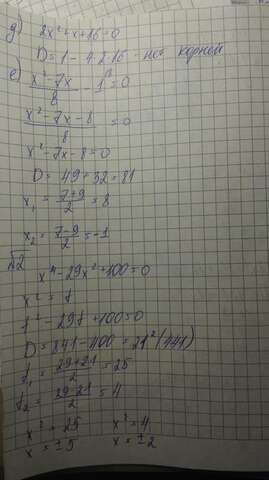 д) 2x²+x+16=0
D=1-4·2·16 - нет корней
е) x²-7x/8 - 1=0
x²-7x-8/8 =0
x²-7x-8=0
D=49+32=81
x₁=7+9/2=8
x₂=7-9/2=-1
№2
x⁴-29x²+100=0
x²=t
t²-29t+100=0
D=841-400=21²(441)
t₁=29+21/2=25
t₂=29-21/2=4
x²=25 x²=4
x=±5 x=±2